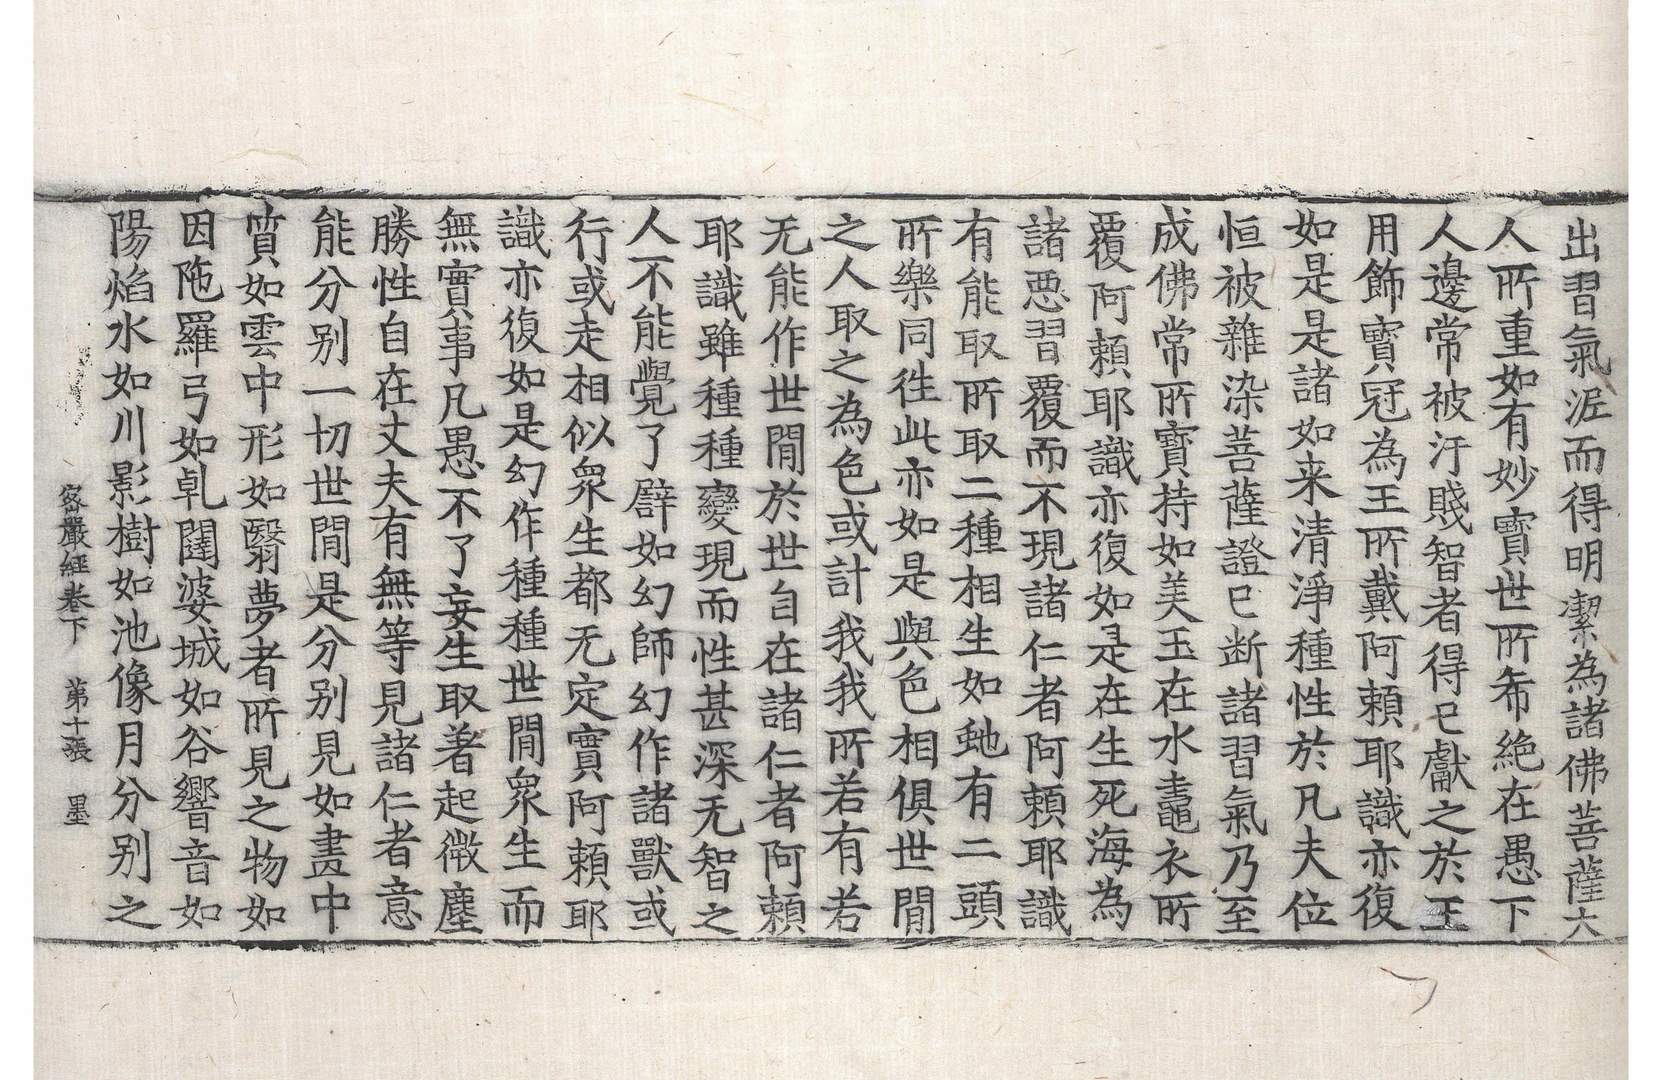 出習氣泥而得明潔為諸佛菩薩大
人所重如有妙寶世所希絶在愚下
人邊常被汙賤智者得已獻之於王
用飾寶冠為王所戴阿賴耶識亦復
如是是諸如来清淨種性於凡夫位
恒被雜染菩薩證已断諸習氣乃至
成佛常所寶持如美玉在水𧏙衣所
覆阿頼耶識亦復如是在生死海為
諸惡習覆而不現諸仁者阿頼耶識
有能取所取二種相生如虵有二頭
所樂同徃此亦如是與色相俱世間
之人取之為色或計我我所若有若
无能作世間於世自在諸仁者阿頼
耶識雖種種變現而性甚深无智之
人不能覺了譬如幻師幻作諸獸或
行或走相似衆生都无定實阿頼耶
識亦復如是幻作種種世間衆生而
無實事凡愚不了妄生取著起微塵
勝性自在丈夫有無等見諸仁者意
能分別一切世間是分別見如畫中
質如雲中形如翳夢者所見之物如
因陁羅弓如乹闥婆城如谷響音如
陽焰水如川影樹如池像月分別之
密嚴經卷下　第十張　墨